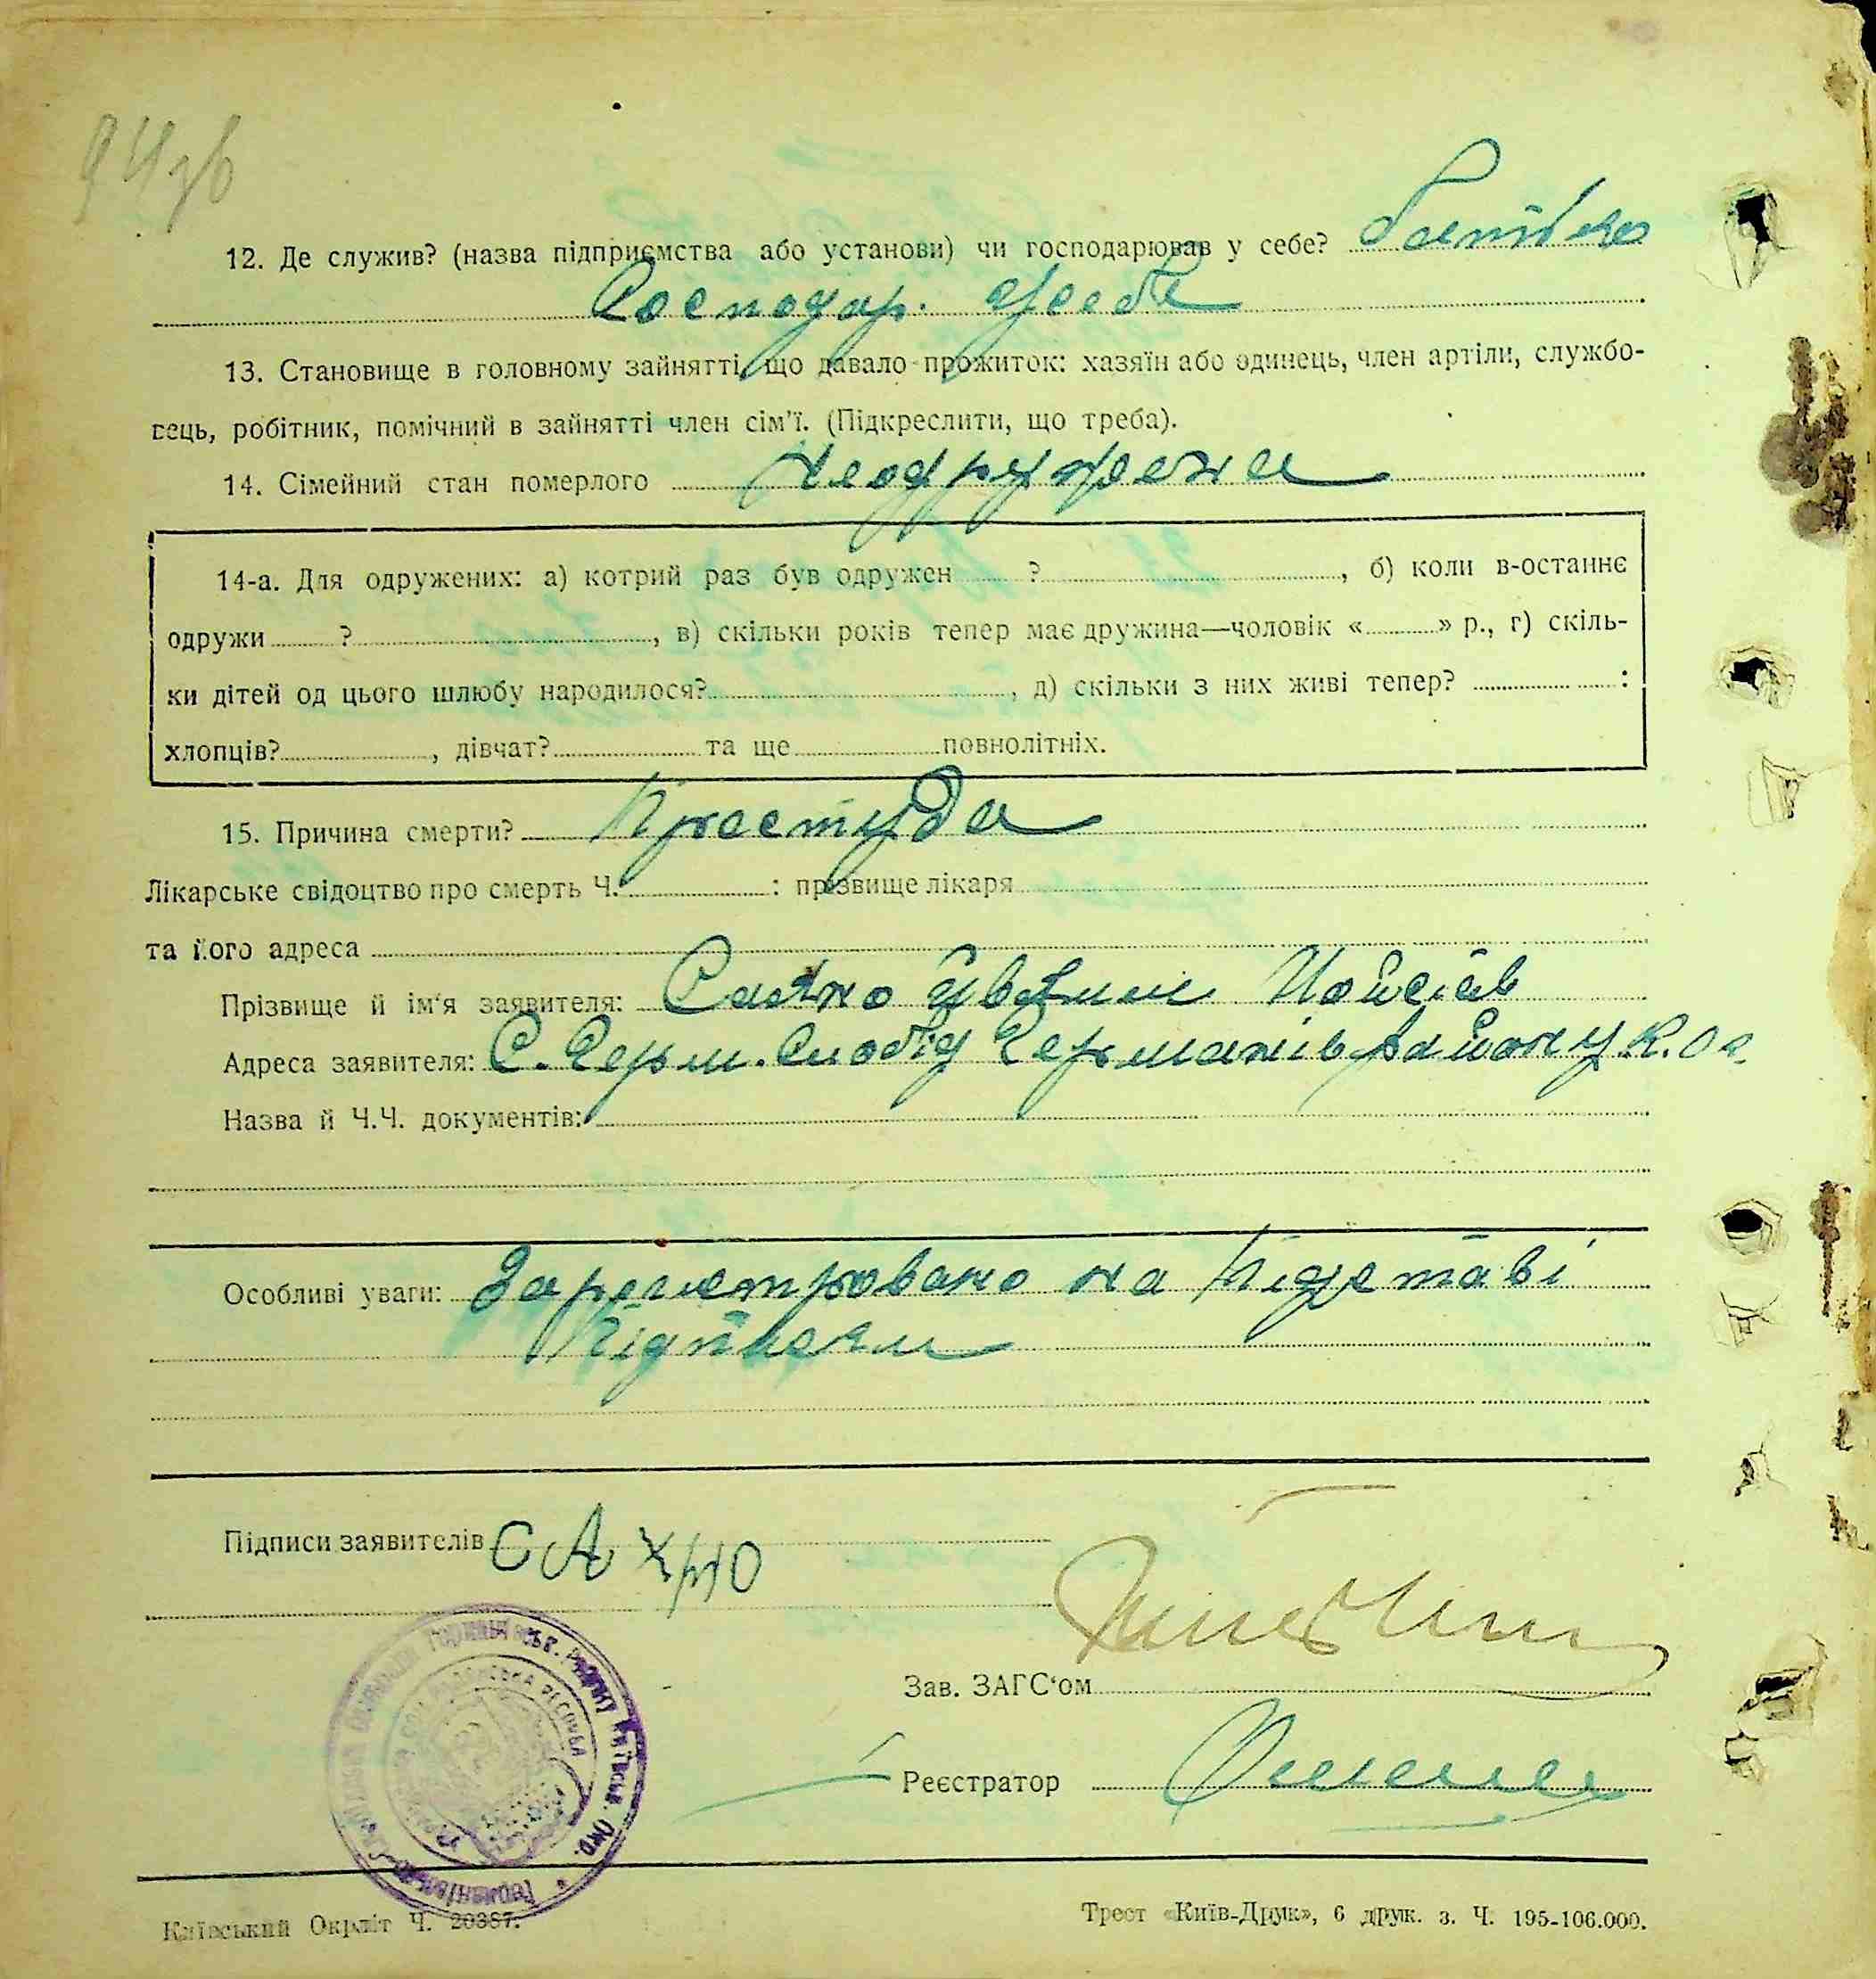 94 зв
12. Де служив? (назва підприємства або установи) чи господарював у себе? Батько
Господар. у себе
13. Становище в головному зайнятті, що давало прожиток: хазяїн або одинець, член артіли, службо-
вець, робітник, помічний в зайнятті член сім'ї. (Підкреслити, що треба).
14. Сімейний стан померлого Неодружена
14-а. Для одружених: а) котрий раз був одружен ? , б) коли в-останнє
одружи ? , в) скільки років тепер має дружина—чоловік « » р., г) скіль-
ки дітей од цього шлюбу народилося? , д) скільки з них живі тепер? :
хлопців? , дівчат? та ще повнолітніх.
15. Причина смерти? Простуда
Лікарське свідоцтво про смерть Ч. : прізвище лікаря
та його адреса
Прізвище й ім'я заявителя: Сахно
Адреса заявителя: С. Герм. Слобід Германів району К. О.
Назва й Ч.Ч. документів:
Особливі уваги: Зареєстровано на підставі
Підписи заявителів САХНО
Зав. ЗАГС'ом
Реєстратор
Київський Окрліт Ч. 20387.
Трест «Київ-Друк», 6 друк. з. Ч. 195-106.000.